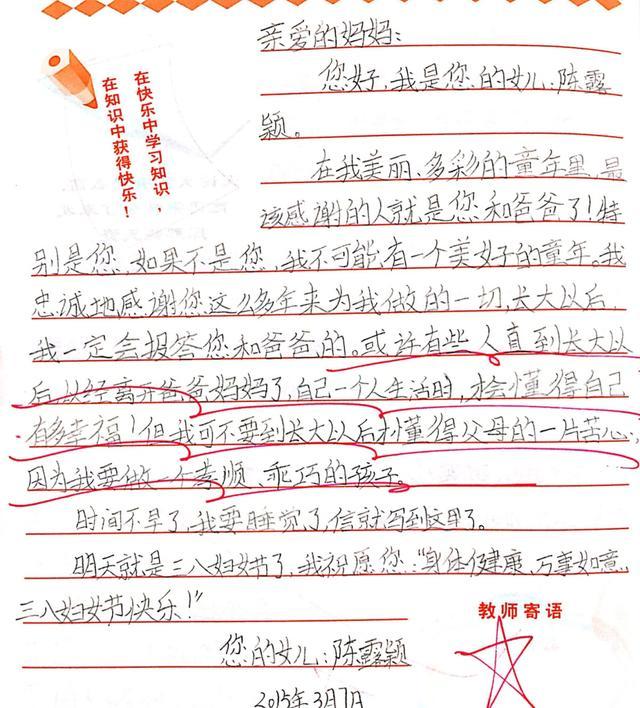 亲爱的妈妈:
您好,我是您的女儿:陈露
颖。
在快乐中学习知识,
在知识中获得快乐!
在我美丽、多彩的童年里,最
该感谢的人就是您和爸爸了!特
别是您,如果不是您,我不可能有一个美好的童年。我
忠诚地感谢您这么多年来为我做的一切,长大以后,
我一定会报答您和爸爸的。或许有些人直到长大以
后,以经离开爸爸妈妈了,自己一个人生活时,才会懂得自己
有多幸福!但我可不要到长大以后才懂得父母的一片苦心,
因为我要做一个孝顺、乖巧的孩子。
时间不早了,我要睡觉了,信就写到这里了。
明天就是三八妇女节了,我祝愿您:“身体健康、万事如意、
三八妇女节快乐!”
教师寄语
您的女儿:陈露颖
2015年3月7日